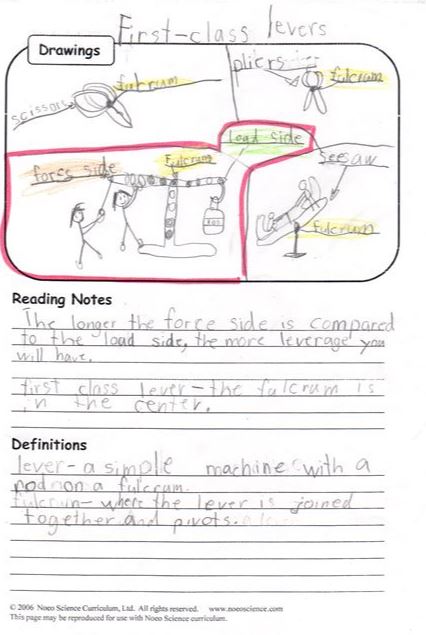 First-class levers
Drawings
pliers
fulcrum
fulcrum
scissors
load side
Seesaw
Fulcrum
force side
fulcrum
Reading Notes
The longer the force side is compared
to the load side, the more leverage you
will have.
first class lever - the fulcrum is
in the center.
Definitions
lever - a simple machine with a
rod on a fulcrum.
fulcrum - where the lever is joined
together and pivots.
© 2006 Noeo Science Curriculum, Ltd. All rights reserved. www.noeoscience.com
This page may be reproduced for use with Noeo Science curriculum.